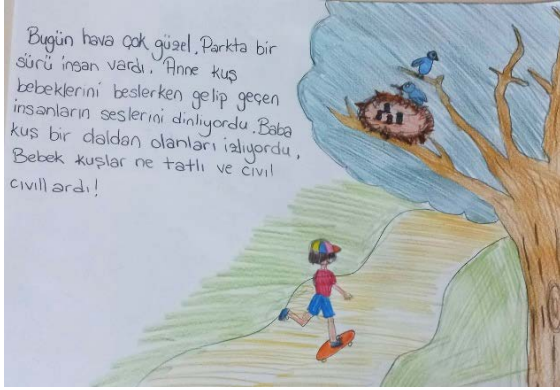 Bugün hava çok güzel. Parkta bir
sürü insan vardı. Anne kuş
bebeklerini beslerken gelip geçen
insanların seslerini dinliyordu. Baba
kuş bir daldan olanları izliyordu.
Bebek kuşlar ne tatlı ve cıvıl
cıvıllardı!